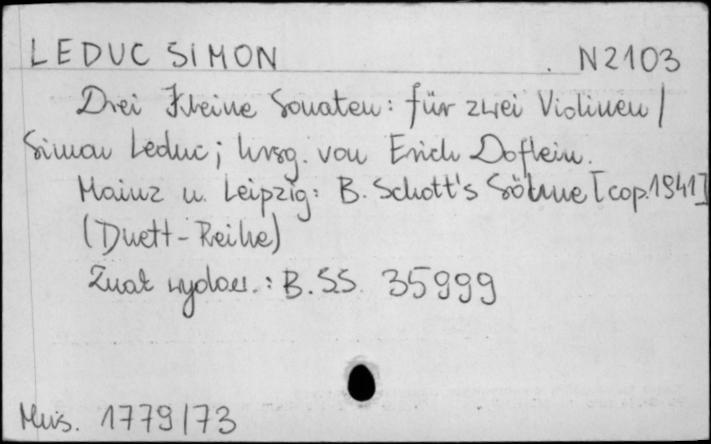 LEDUC SIMON N2103
Drei Kleine Sonaten: für zwei Violinen /
Simon Leduc; hrsg. von Erich Doflein.
Mainz u. Leipzig: B. Schott's Söhne [cop.1941]
(Duett-Reihe)
Znak wydaw.: B.SS. 35999
Mus. 1779/73